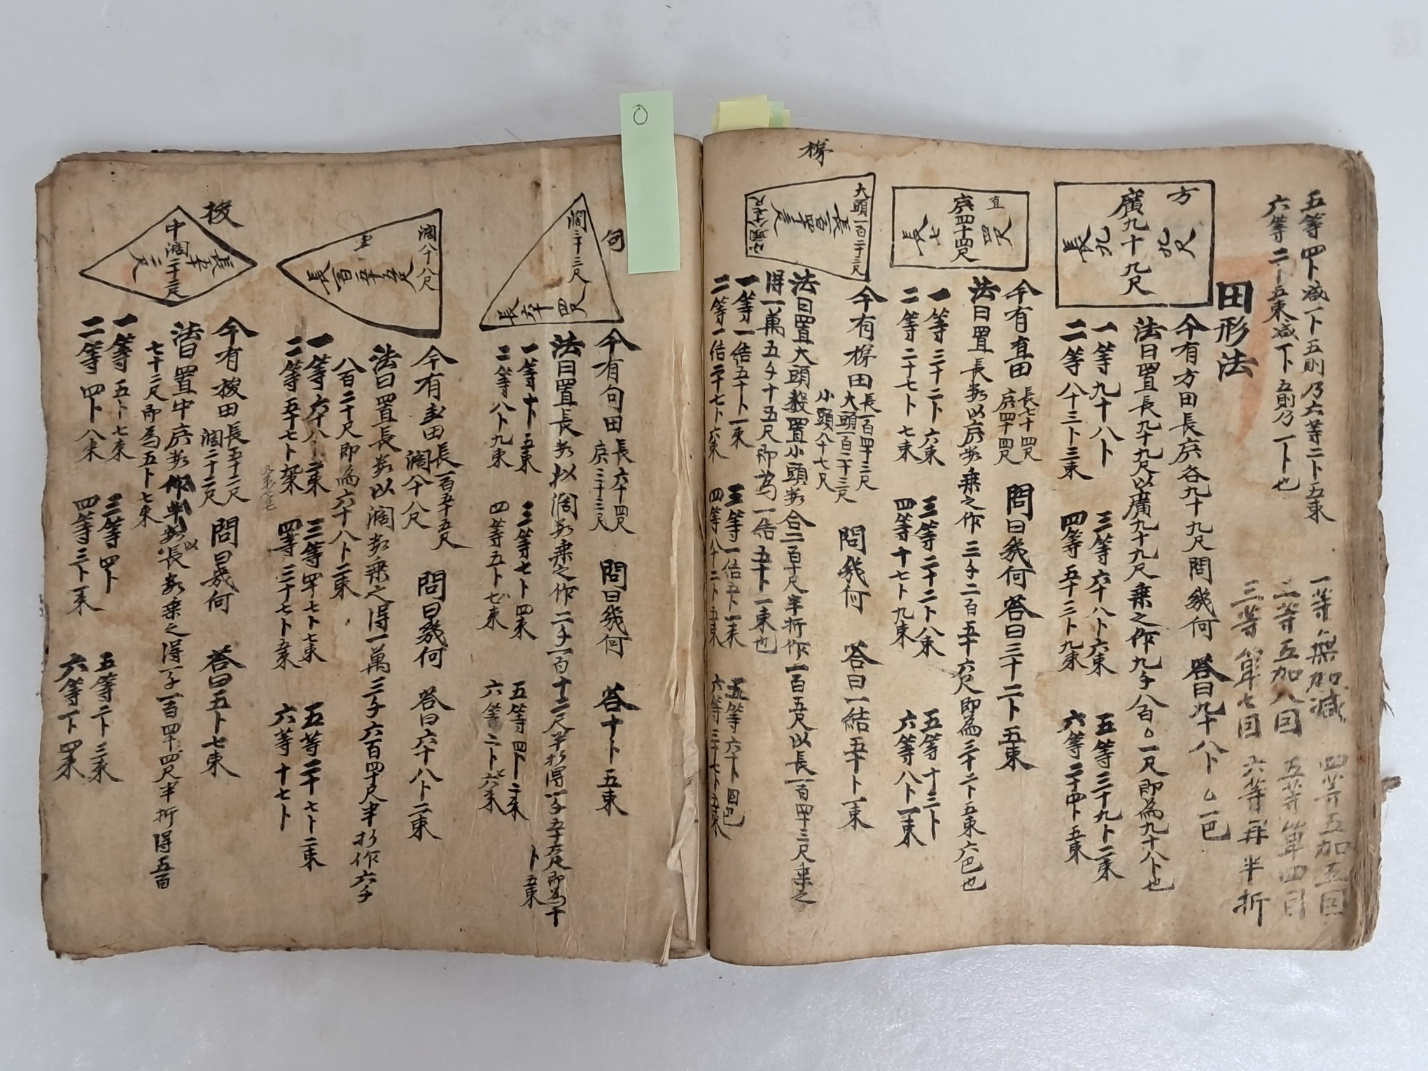 五等四卜减一卜五則乃六等二卜五束
六等
一等無加减 四等五加五回
二等五加八回 五等 四回
三等 七回 六等 半折
田形法
方
廣九十九尺
長九 九尺
今有方田長庑各九十九尺問幾何 答曰九十八卜
法曰置長九十九尺以廣九十九尺乘之作九千八百 一尺即為九十八卜也
一等九十八卜 三等六十八卜六束 五等三十九卜二束
二等八十三卜三束 四等五十三卜九束
直
庑四十四尺
長七 四尺
今有直田 長七十四尺 庑四十四尺 問曰幾何 答曰三十二卜五束
法曰置長 以庑 乘之作三千二百五十六尺即為三十二卜五束六巴也
一等三十二卜六束 三等二十二卜八束 五等十三卜
二等二十七卜七束 四等十七卜九束 六等八卜一束
梯
大頭一百二十三尺
長一百四十三尺
小頭八十七尺
今有梯田 長一百四十三尺 大頭一百二十三尺 小頭八十七尺 問幾何 答曰一結五十卜一束
法曰置大頭 置小頭 合二百十尺半折作一百五尺以長一百四十三尺乘之
得一萬五千十五尺即為一結五十卜一束也
一等一結五十卜一束 三等一結五卜一束 五等六十卜
二等一結二十七卜六束 四等八十二卜五束 六等三十七卜五束
句
闊三十三尺
長六十四尺
今有句田 長六十四尺 庑三十三尺 問曰幾何 答十卜五束
法曰置長 以闊 乘之作二千一百十二尺半折得一千五十六尺即為十卜五束
一等十卜五束 三等七卜四束 五等四卜二束
二等八卜九束 四等五卜七束 六等二卜六束
圭
闊八十八尺
長一百五十五尺
今有圭田 長一百五十五尺 闊八十八尺 問曰幾何 答曰六十八卜二束
法曰置長 以闊 乘之得一萬三千六百四十尺半折作六千
八百二十尺即為六十八卜二束
一等六十八卜二束 三等四十七卜七束 五等二十七卜二束
二等五十七卜 四等三十七卜五束 六等十七卜
梭
中闊二十二尺
長五十二尺
今有梭田 長五十二尺 闊二十二尺 問曰幾何 答曰五卜七束
法曰置中庑 作半 以長 乘之得一千一百四十四尺半折得五百
七十二尺即為五卜七束
一等五卜七束 三等四卜 五等二卜三束
二等四卜八束 四等三卜一束 六等一卜四束